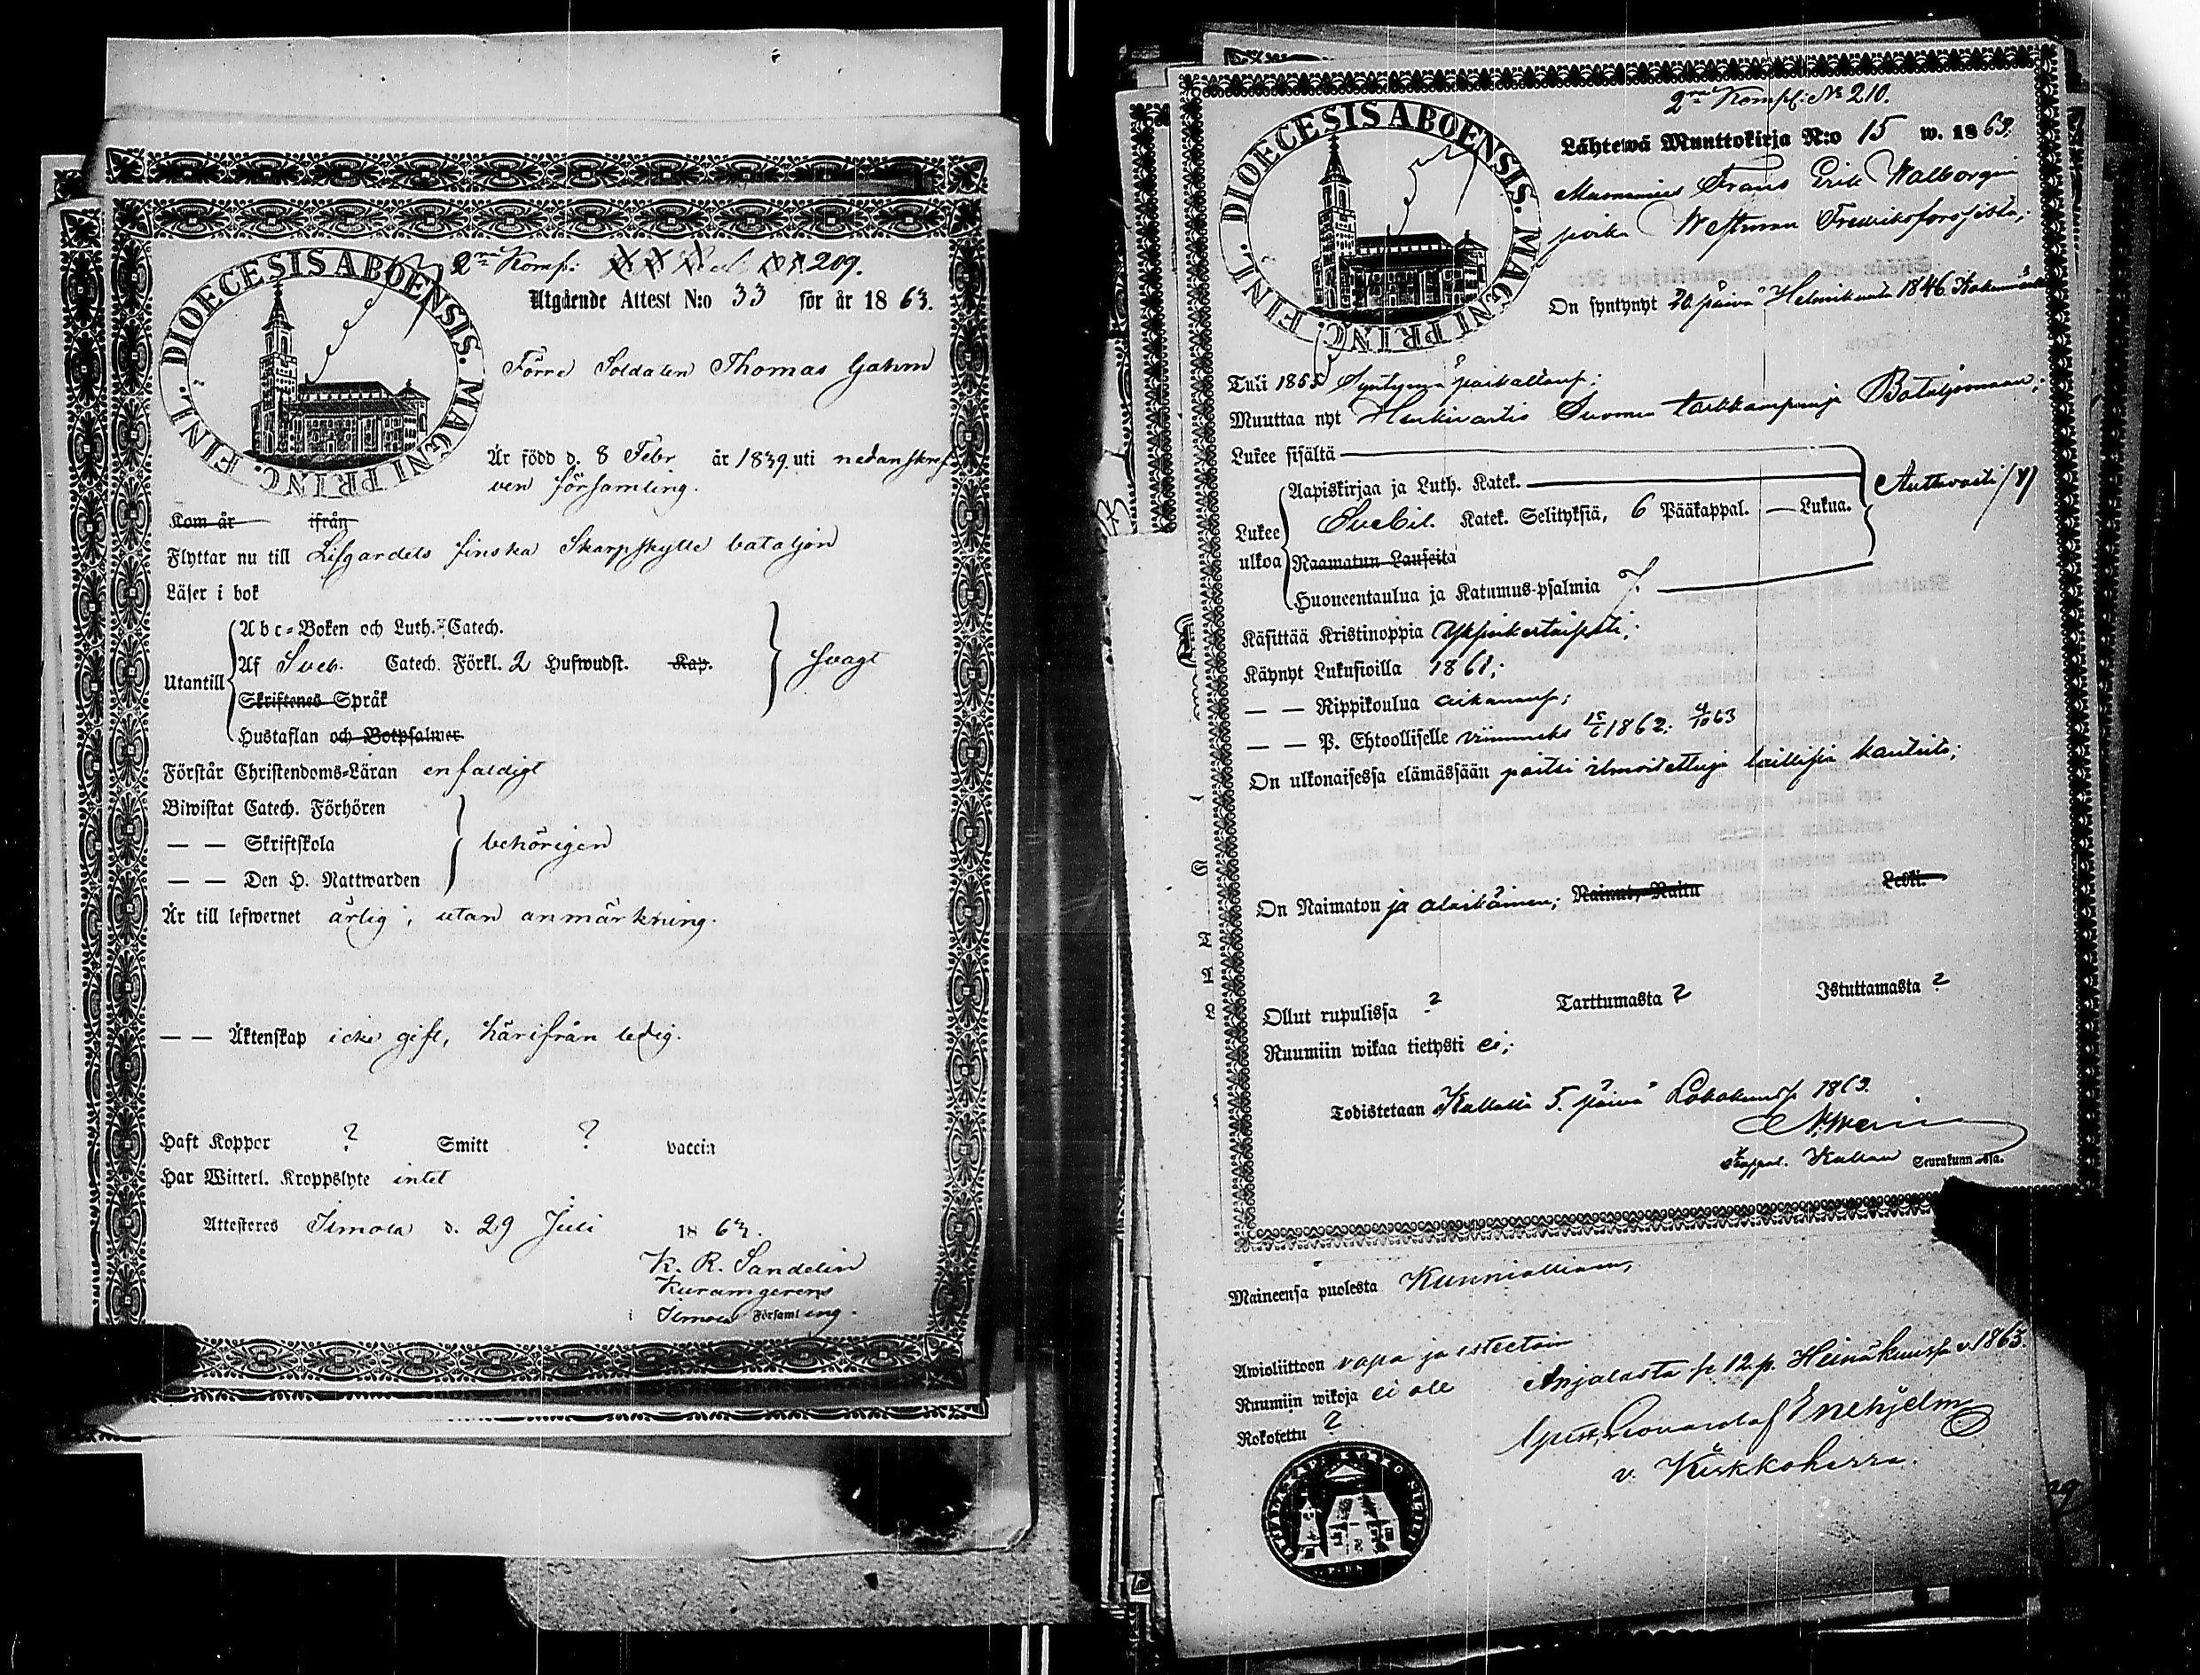 DIOECESIS ABOENSIS. MAGNI PRINC. FINL.
2ra Komp: 209.
Utgående Attest N:o 33 för år 1863.
Förre Soldaten Thomas
Är född d. 8 Febr. år 1839. uti nedanskref-
ven församling.
Kom år ifrån
Flyttar nu till Lifgardets finska Skarpskytte bataljon
Läser i bok
Abc-Boken och Luth. Catech.
Utantill
Af Sveb. Catech. Förkl. 2 Hufwudst. Kap.
svagt
Skriftenes Språk
Hustaflan och Botpsalmer
Förstår Christendoms-Läran enfaldigt
Biwistat Catech. Förhören
— — Skriftskola
behörigen
— — Den H. Nattwarden
Är till lefwernet ärlig, utan anmärkning.
— — Äktenskap icke gift, härifrån ledig.
Haft Koppor ? Smitt ? vaccin
Har Witterl. Kroppslyte intet
Attesteras Ilmola d. 29 Juli 1863.
K. R. Sandelin
i Ilmola Församling.
DIOECESIS ABOENSIS. MAGNI PRINC. FINL.
2ra Komp: No 210.
Lähtewä Muuttokirja N:o 15 w. 1863.
Frans Erik Walborgin
poika Westman
On syntynyt 20 päivä Helmikuuta 1846
Tuli 1855
Muuttaa nyt Henkivartio Suomen tarkkampuja Bataljonaan;
Lukee sisältä
Aapiskirjaa ja Luth. Katek.
Auttavasti
Lukee
ulkoa
Svebil. Katek. Selityksiä, 6 Pääkappal. — Lukua.
Raamatun Lauseita
Huoneentaulua ja Katumus-psalmia 7
Käsittää Kristinoppia Yksinkertaisesti;
Käynyt Lukusioilla 1861;
— — Rippikoulua aikanans;
— — P. Ehtoolliselle viimmeks 1862. 4/10 63
On ulkonaisessa elämässään paitsi ilmoitettuja laillisia kanteita;
On Naimaton ja alaikäinen; Nainut, Naitu Leski.
Ollut rupulissa ? Tarttumasta ? Istuttamasta ?
Ruumiin wikaa tietysti ei;
Todistetaan 5. päivä Lokakuussa 1863.
Kappal. Seurakunnassa.
Maineensa puolesta Kunniallinen,
Awioliittoon vapa ja esteetöin
Ruumiin wikoja ei ole
Anjalasta se 12 p. Heinäkuussa v. 1863.
Rokotettu ?
Enehjelm
v. Kirkkoherra.